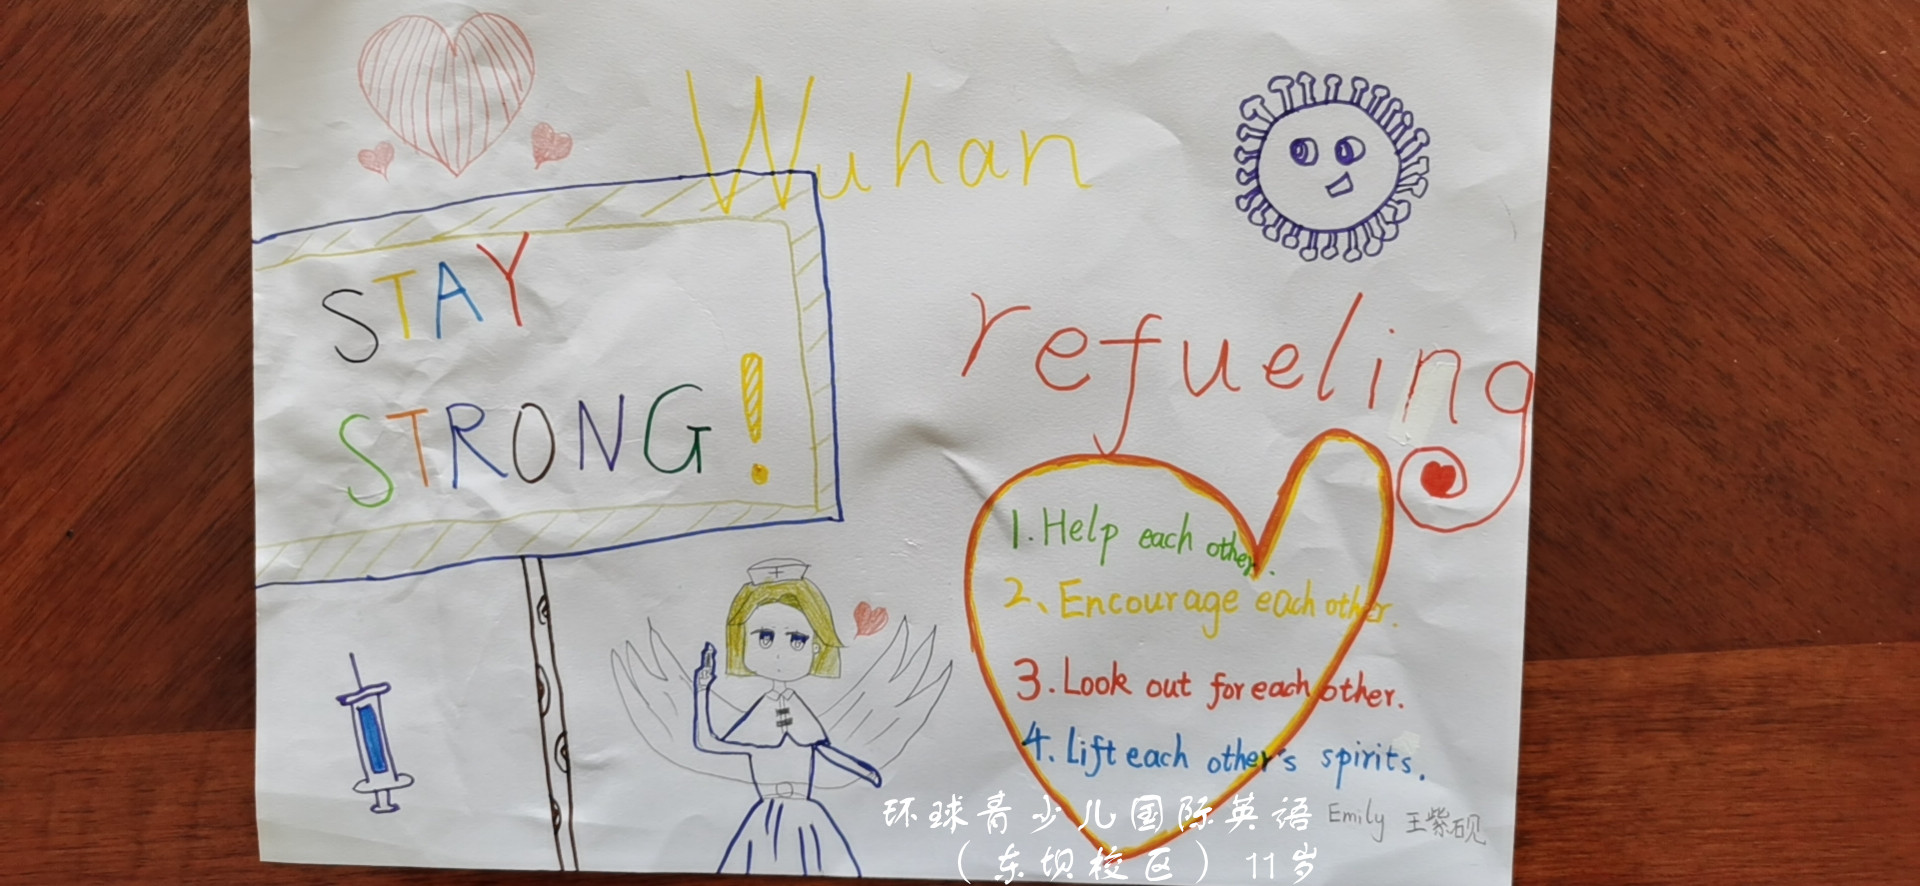 Wuhan
STAY
STRONG!
refueling
1. Help each other.
2、Encourage each other.
3. Look out for each other.
4. Lift each other's spirits.
Emily 王紫砚
环球青少儿国际英语
(东坝校区) 11岁